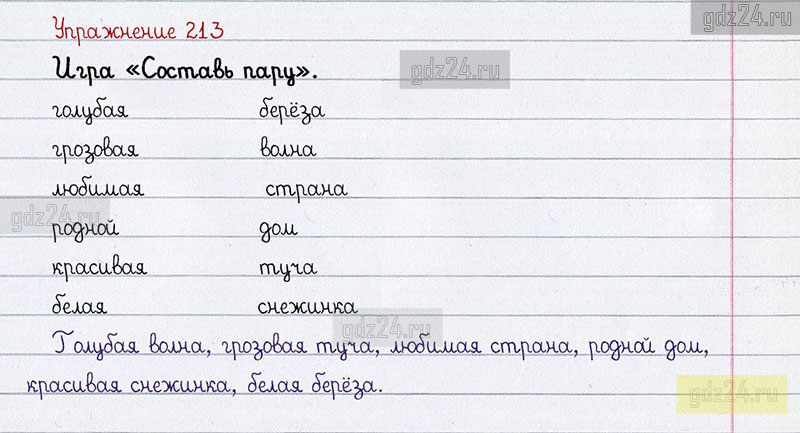 gdz24.ru
Упражнение 213
Игра «Составь пару».
gdz24.ru
голубая берёза
грозовая волна
любимая страна
gdz24.ru
родной дом
красивая туча
белая снежинка
gdz24.ru
Голубая волна, грозовая туча, любимая страна, родной дом,
красивая снежинка, белая берёза.
gdz24.ru